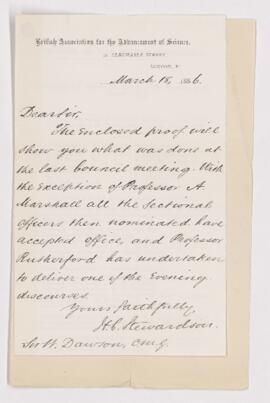 British Association for the Advancement of Science,
22 ALBEMARLE STREET
LONDON, W.
March 18, 1886.
Dear Sir,
The Enclosed proof will
show you what was done at
the last Council meeting. With
the Exception of Professor A.
Marshall all the Sectional
Officers then nominated have
accepted office, and Professor
Rutherford has undertaken
to deliver one of the Evening
discourses.
Yours faithfully,
H.C. Stewardson.
Sir W. Dawson, C.M.G.